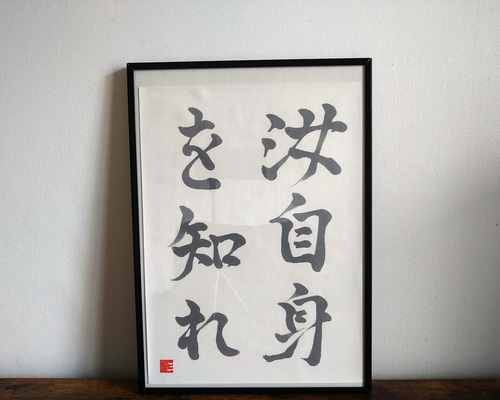 汝自身
を知れ